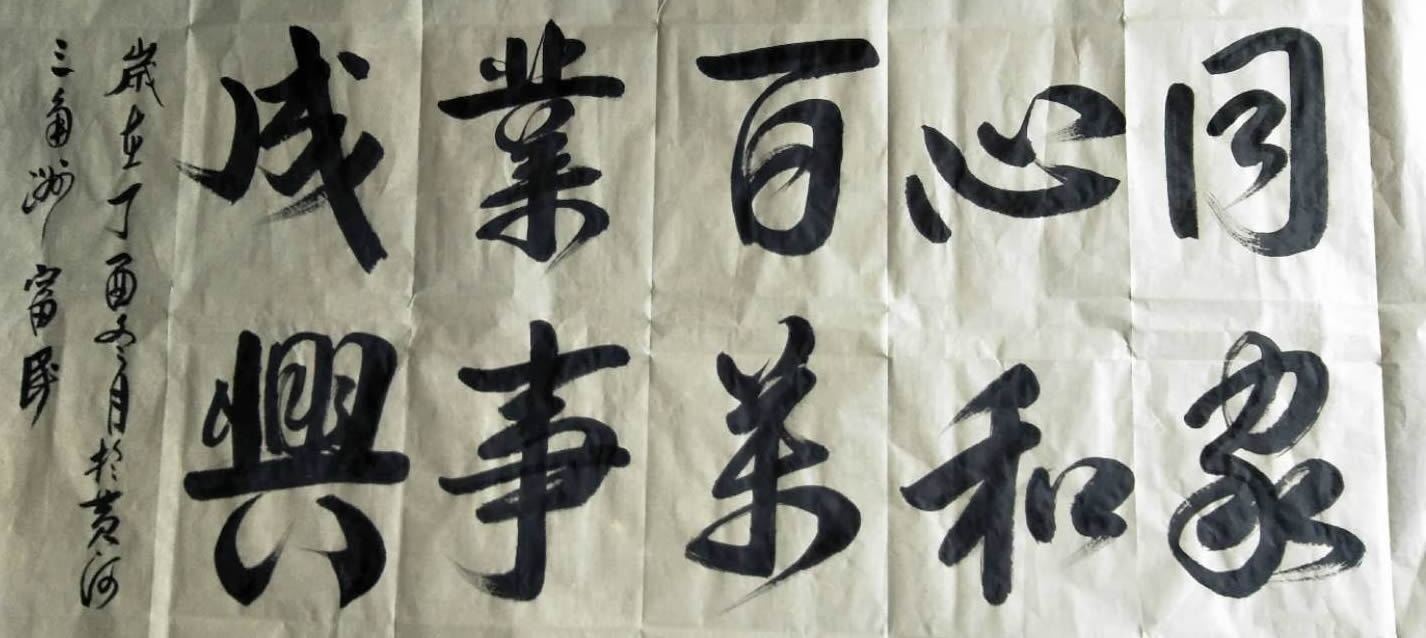 同心百業成
家和萬事興
歲在丁酉冬月於黄河
三角洲富民